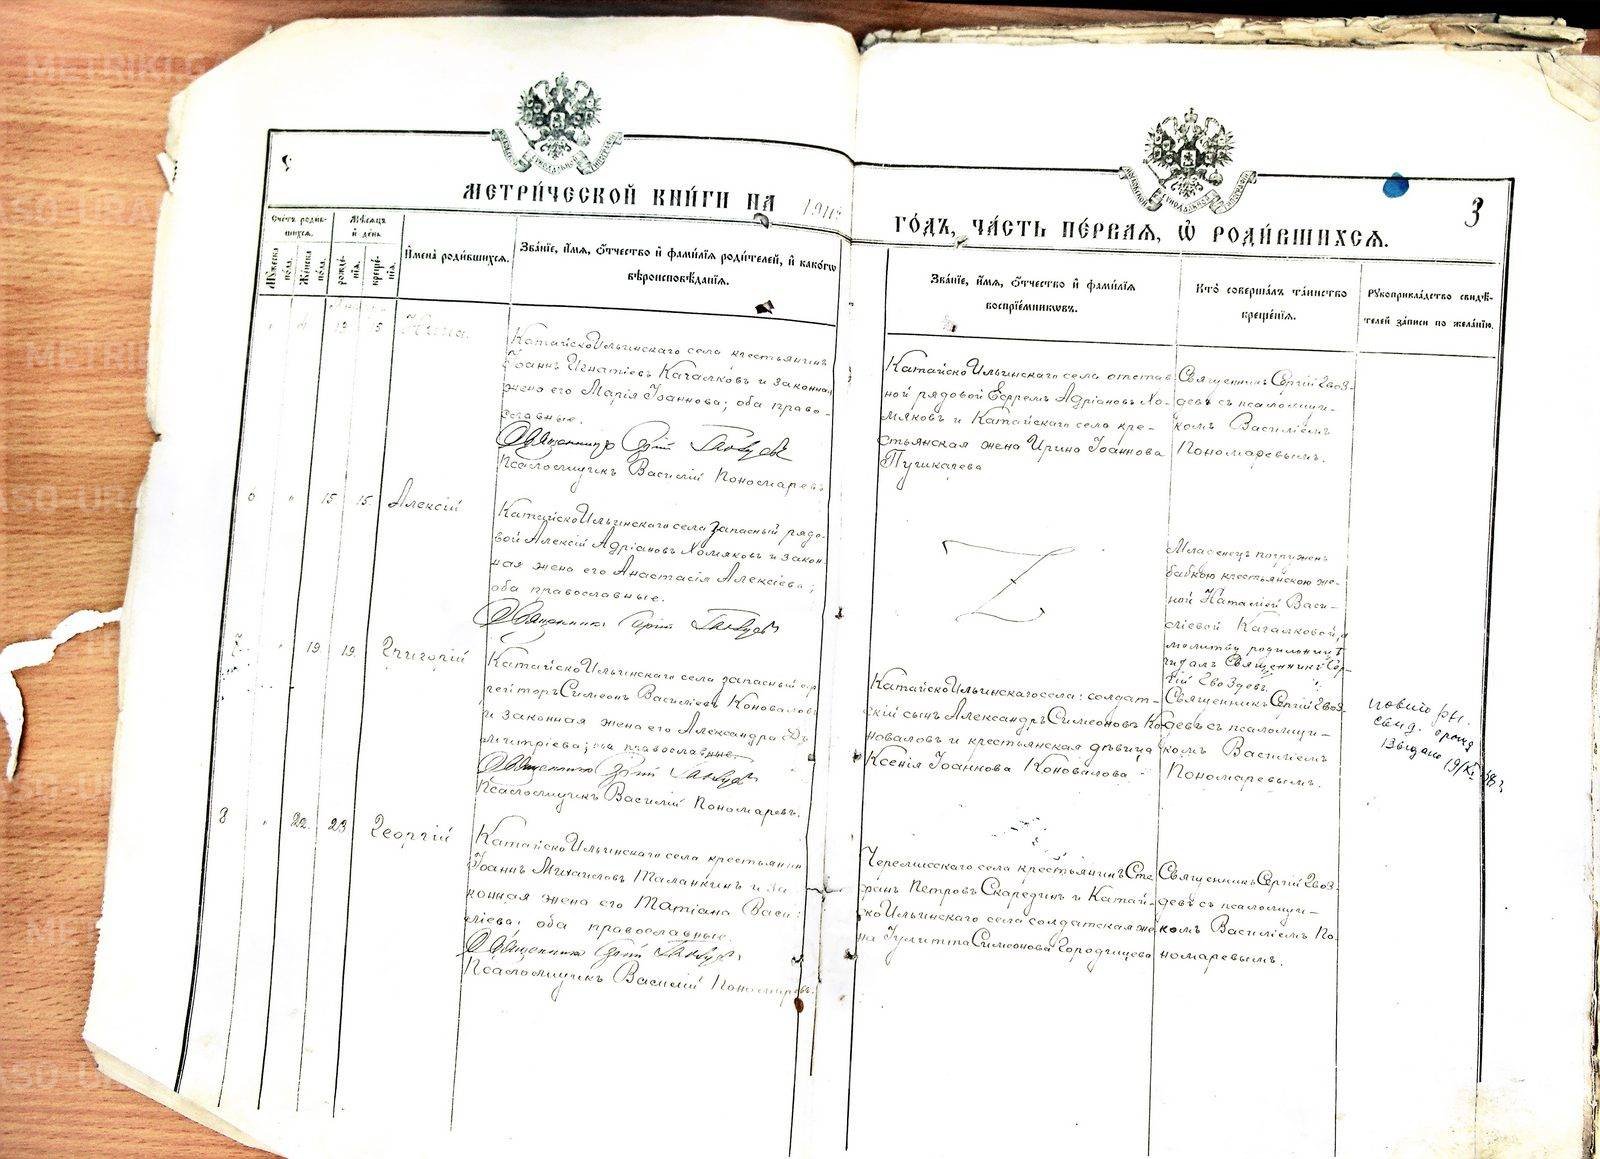 МЕТРИ́ЧЕСКОЙ КНИ́ГИ НА
ГО́ДЪ, ЧА́СТЬ ПЕ́РВАЯ, Ѡ҆ РОДИ́ВШИХСЯ.
3
Сче́тъ роди́вшихся.
Мѣ́сяцъ и҆ де́нь.
Муже́ска по́ла.
Же́нска по́ла.
рожде́нїя.
креще́нїя.
И҆мена̀ роди́вшихся.
Зва́нїе, и҆́мя, ѻ҆́тчество и҆ фами́лїя роди́телей, и҆ како́гѡ
вѣроисповѣ́данїя.
Зва́нїе, и҆́мя, ѻ҆́тчество и҆ фами́лїя
воспрїе́мникѡвъ.
Кто̀ соверша́лъ та́инство
креще́нїя.
Рꙋкоприкла́дство свидѣ́-
телей за́писи по жела́нїю.
Нина.
КатайскоИльинскаго села крестьянинъ
Іоаннъ Игнатіевъ Качалковъ и законная
жена его Марія Іоаннова; оба право-
славные.
Священникъ Сергій Гвоздевъ
Псаломщикъ Василій Пономаревъ
КатайскоИльинскаго села отстав-
ной рядовой Ефремъ Адріановъ Хо-
мяковъ и Катайскаго села кре-
стьянская жена Ирина Іоаннова
Пушкарева
Священникъ Сергій Гвоз-
девъ съ псаломщи-
комъ Василіемъ
Пономаревымъ.
6 15 15. Алексій
КатайскоИльинскаго села запасный рядо-
вой Алексій Адріановъ Хомяковъ и закон-
ная жена его Анастасія Алексіева;
оба православные.
Священникъ Сергій Гвоздевъ
Младенецъ погруженъ
бабкою крестьянскою же-
ной Наталіей Васи-
ліевой Качалковой, а
молитву родильницѣ
читалъ Священникъ Сер-
гій Гвоздевъ.
19 19. Григорій
КатайскоИльинскаго села запасный еф-
рейторъ Симеонъ Василіевъ Коноваловъ
и законная жена его Александра Ди-
митріева; оба православные.
Священникъ Сергій Гвоздевъ
Псаломщикъ Василій Пономаревъ.
КатайскоИльинскаго села: солдат-
скій сынъ Александръ Симеоновъ Ко-
новаловъ и крестьянская дѣвица
Ксенія Іоаннова Коновалова
Священникъ Сергій Гвоз-
девъ съ псаломщи-
комъ Василіемъ
Пономаревымъ.
8 22. 23 Георгій
КатайскоИльинскаго села крестьянинъ
Іоаннъ Михаиловъ Таланкинъ и за-
конная жена его Татіана Васи-
ліева; оба православные.
Священникъ Сергій Гвоздевъ
Псаломщикъ Василій Пономаревъ.
Черемисскаго села крестьянинъ Сте-
фанъ Петровъ Скарединъ и Катай-
скоИльинскаго села солдатская же-
на Іулитта Симеонова Городчицева
Священникъ Сергій Гвоз-
девъ съ псаломщи-
комъ Василіемъ По-
номаревымъ.